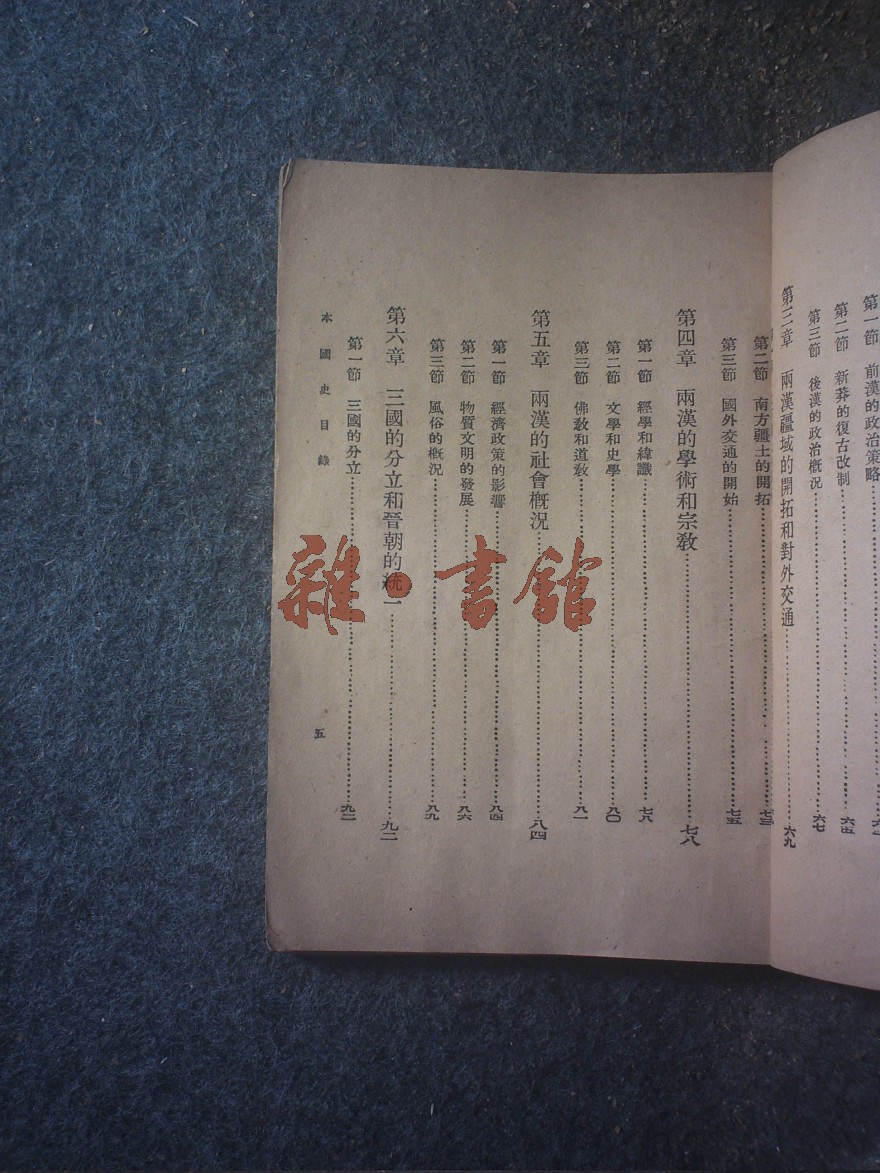 第一節 前漢的政治策略
第二節 新莽的復古改制……六五
第三節 後漢的政治概況……六七
第三章 兩漢疆域的開拓和對外交通……六九
第二節 南方疆土的開拓……七三
第三節 國外交通的開始……七五
第四章 兩漢的學術和宗教……七八
第一節 經學和緯讖……七八
第二節 文學和史學……八〇
第三節 佛教和道教……八一
第五章 兩漢的社會概況……八四
第一節 經濟政策的影響……八四
第二節 物質文明的發展……八六
第三節 風俗的概況……八九
第六章 三國的分立和晉朝的統一……九二
第一節 三國的分立……九二
本國史目錄 五
雜·書館